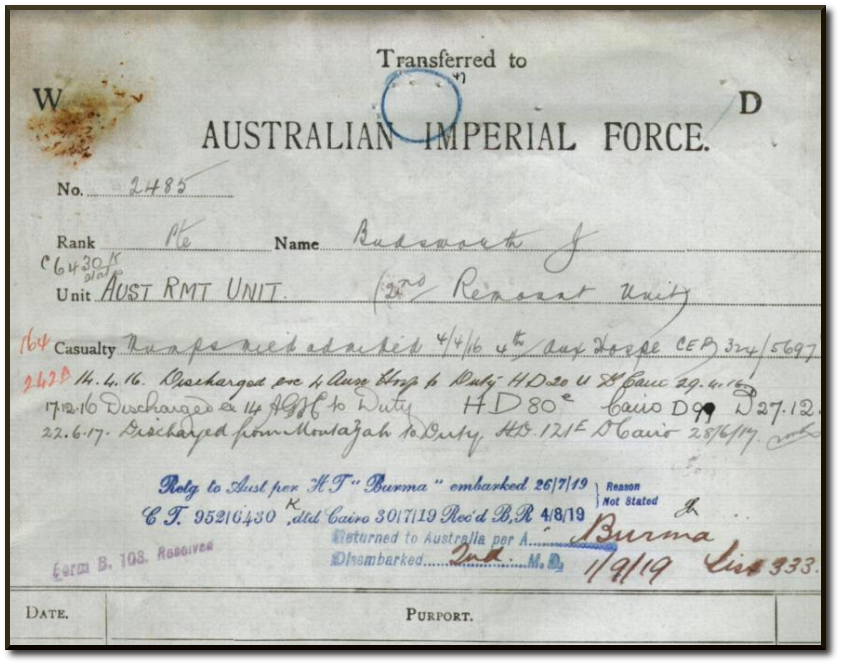 Transferred to
W D
AUSTRALIAN IMPERIAL FORCE.
No. 2485
Rank Pte Name Budsworth J
C6430 K
Unit AUST RMT UNIT. (2nd Remount Unit)
164 Casualty Mumps mild admitted 4/4/16 4th Aux Hosp CEP 324/5697
242 14.4.16. Discharged ex 4 Aux Hosp to Duty HD 20 Cairo 29.4.16
17.12.16 Discharged ex 14 AGH to Duty HD 80e Cairo D99 27.12.
22.6.17. Discharged from Montazah to Duty HD. 121E D Cairo 28/6/17.
Retg to Aust per "HT" Burma" embarked 26/7/19 } Reason Not Stated
C T. 952/6430 K, dtd Cairo 30/7/19 Rec'd B,R 4/8/19
Returned to Australia per A..... Burma
Disembarked..... 2nd. M.D. 1/9/19 List 333.
Form B. 103. Received
DATE. PURPORT.